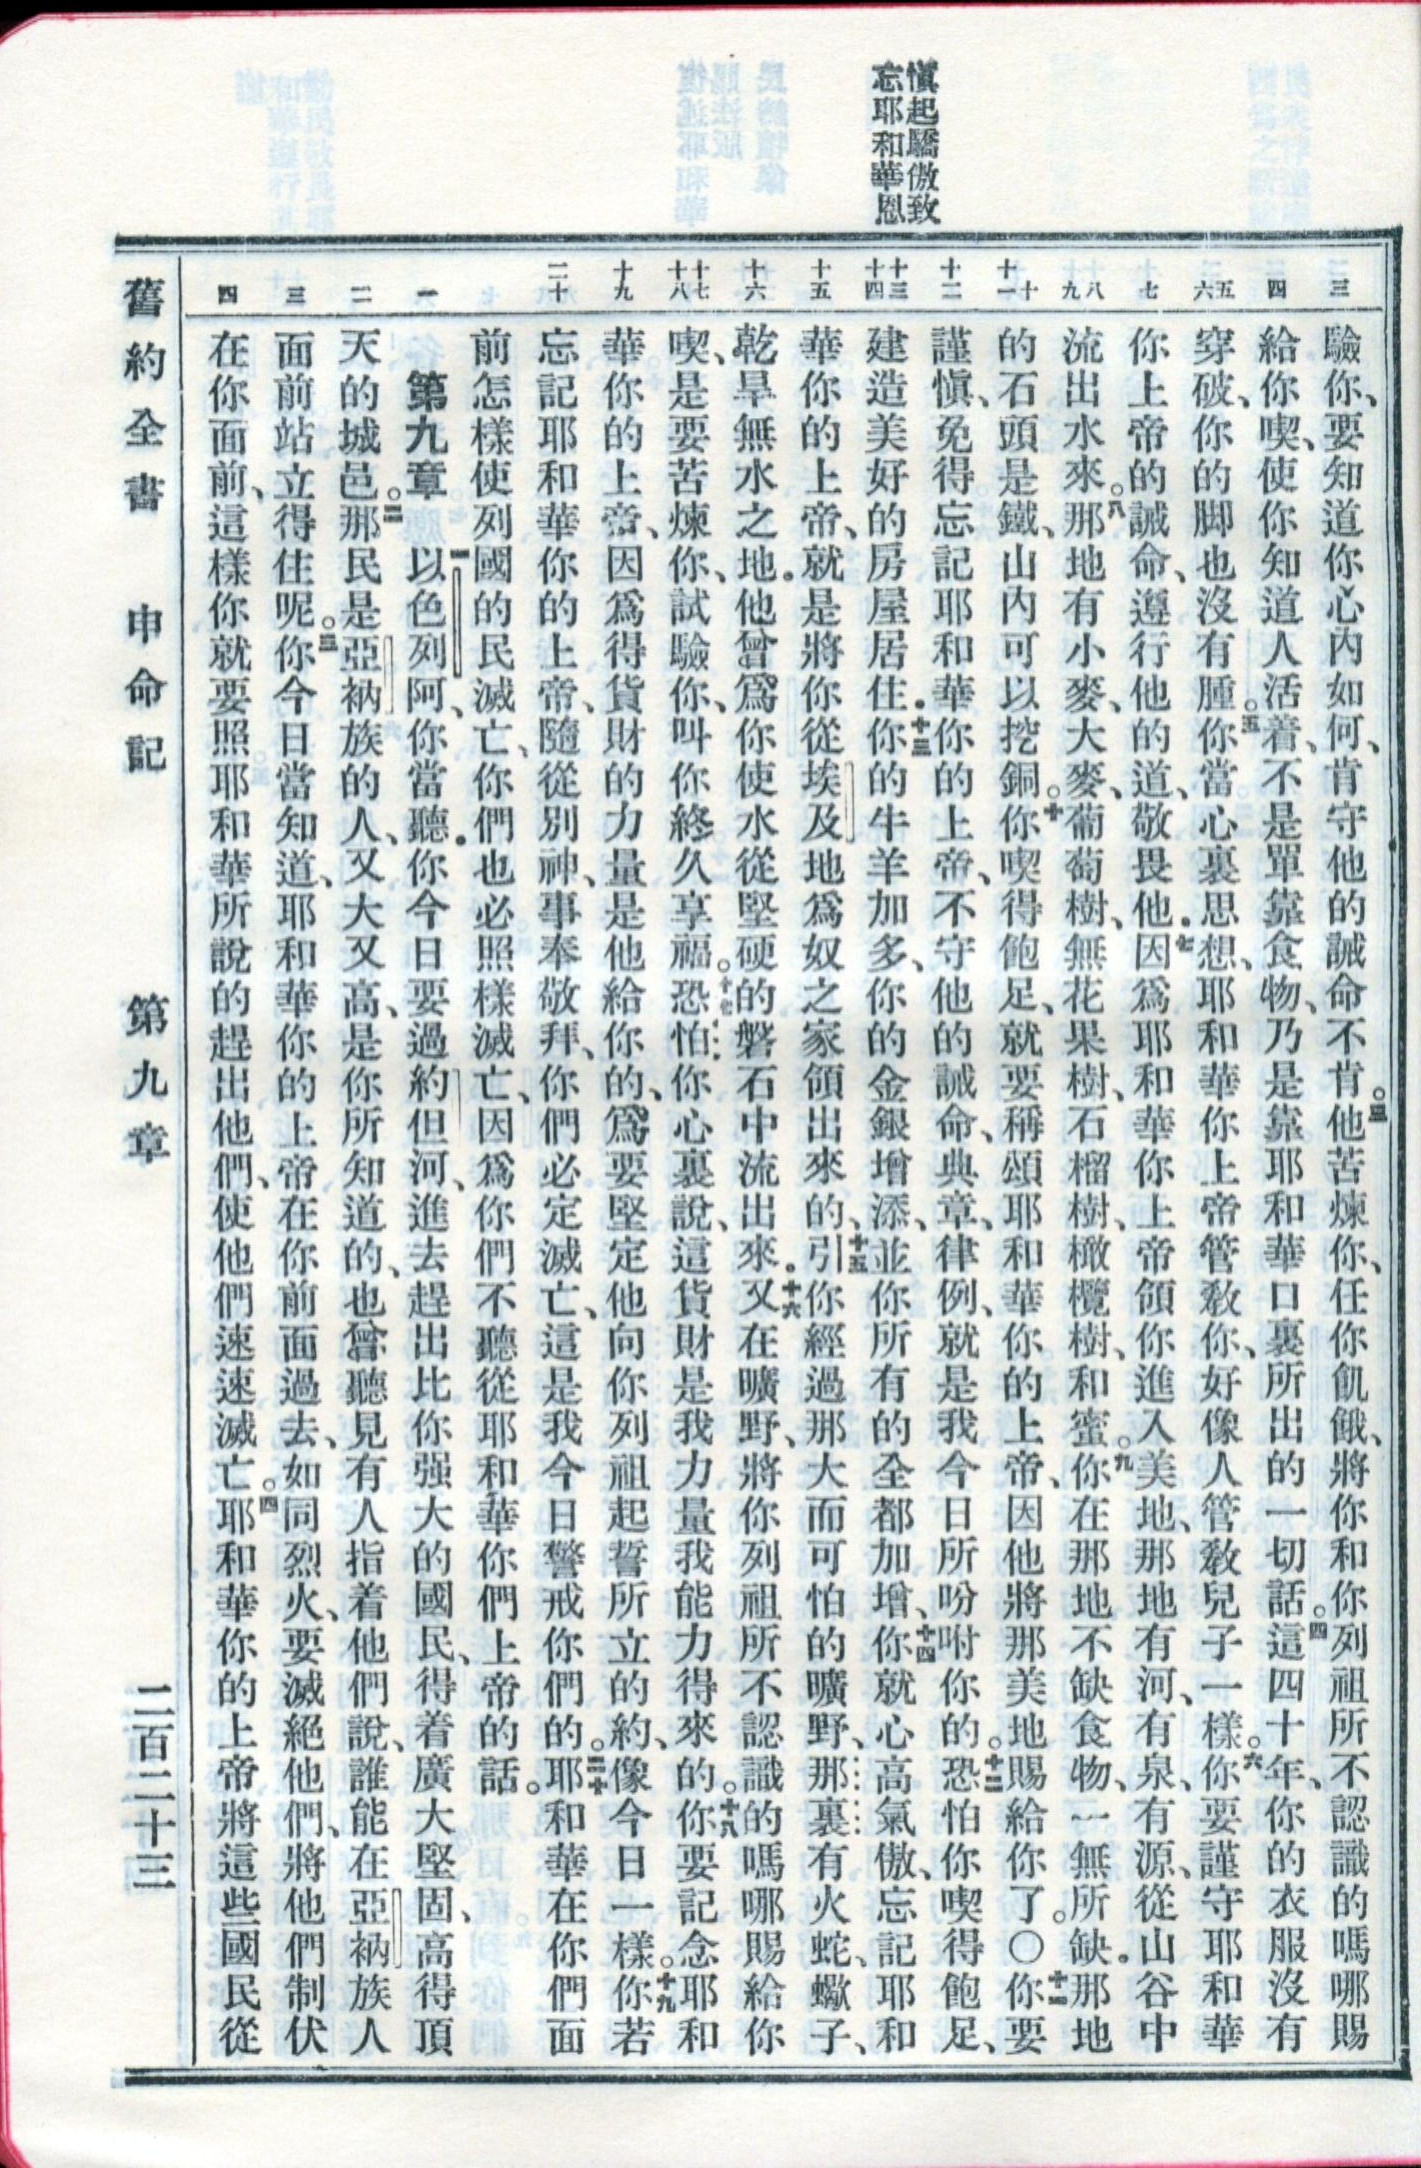 慎起驕傲致
忘耶和華恩
三
四
五 六
七
八 九
十 十一
十二
十三 十四
十五
十六
十七 十八
十九
二十
一
二
三
四
驗你、要知道你心內如何、肯守他的誡命不肯。三他苦煉你、任你飢餓、將你和你列祖所不認識的嗎哪賜
給你喫、使你知道人活着、不是單靠食物、乃是靠耶和華口裏所出的一切話。四這四十年、你的衣服沒有
穿破、你的脚也沒有腫。五你當心裏思想、耶和華你上帝管敎你、好像人管敎兒子一樣。六你要謹守耶和華
你上帝的誡命、遵行他的道、敬畏他.七因爲耶和華你上帝領你進入美地、那地有河、有泉、有源、從山谷中
流出水來。八那地有小麥、大麥、葡萄樹、無花果樹、石榴樹、橄欖樹、和蜜。九你在那地不缺食物、一無所缺.那地
的石頭是鐵、山內可以挖銅。十你喫得飽足、就要稱頌耶和華你的上帝、因他將那美地賜給你了。○十一你要
謹慎、免得忘記耶和華你的上帝、不守他的誡命、典章、律例、就是我今日所吩咐你的。十二恐怕你喫得飽足、
建造美好的房屋居住.十三你的牛羊加多、你的金銀增添、並你所有的全都加增、十四你就心高氣傲、忘記耶和
華你的上帝、就是將你從埃及地爲奴之家領出來的、十五引你經過那大而可怕的曠野、那裏有火蛇、蠍子、
乾旱無水之地.他曾爲你使水從堅硬的磐石中流出來.十六又在曠野、將你列祖所不認識的嗎哪賜給你
喫、是要苦煉你、試驗你、叫你終久享福。十七恐怕你心裏說、這貨財是我力量我能力得來的。十八你要記念耶和
華你的上帝、因爲得貨財的力量是他給你的、爲要堅定他向你列祖起誓所立的約、像今日一樣。十九你若
忘記耶和華你的上帝、隨從別神、事奉敬拜、你們必定滅亡、這是我今日警戒你們的。二十耶和華在你們面
前怎樣使列國的民滅亡、你們也必照樣滅亡、因爲你們不聽從耶和華你們上帝的話。
第九章 一以色列阿、你當聽.你今日要過約但河、進去趕出比你强大的國民、得着廣大堅固、高得頂
天的城邑。二那民是亞衲族的人、又大又高、是你所知道的、也曾聽見有人指着他們說、誰能在亞衲族人
面前站立得住呢。三你今日當知道、耶和華你的上帝在你前面過去、如同烈火、要滅絕他們、將他們制伏
在你面前、這樣你就要照耶和華所說的趕出他們、使他們速速滅亡。四耶和華你的上帝將這些國民從
舊約全書 申命記 第九章 二百二十三